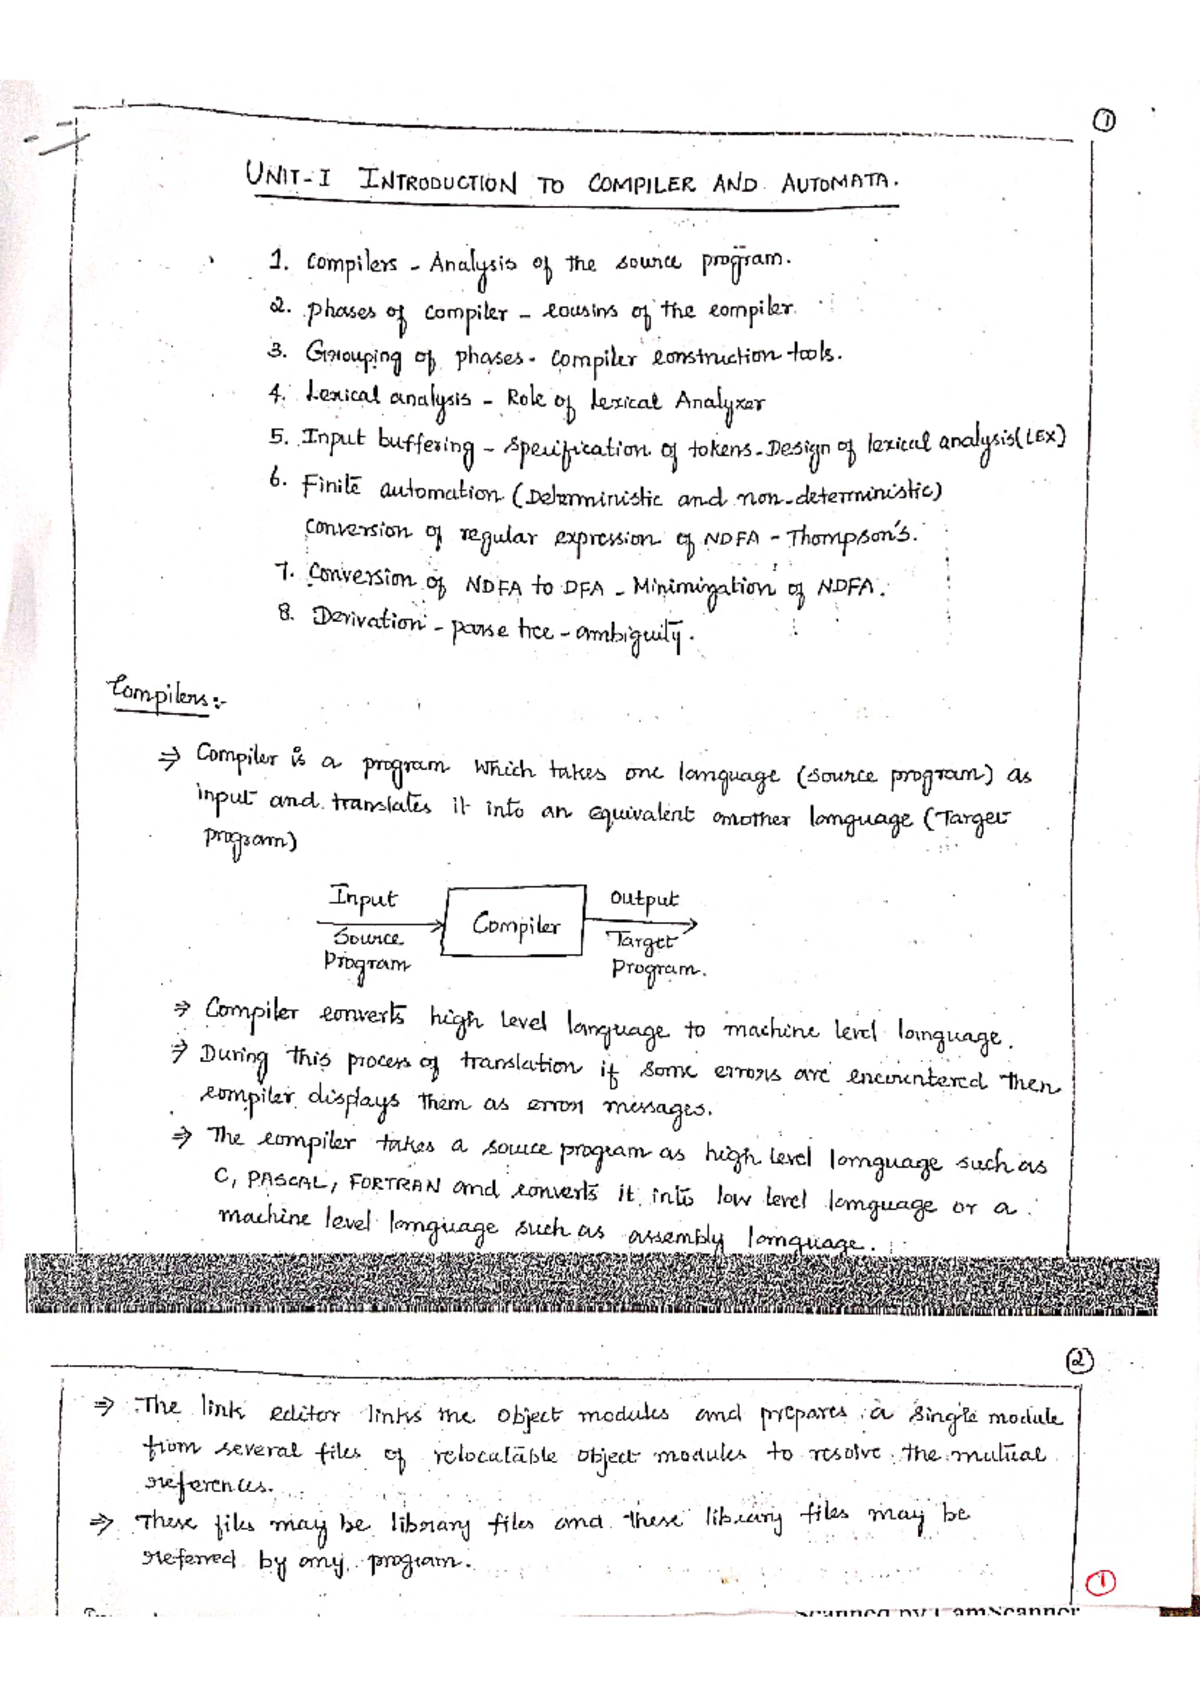 ①
UNIT-I INTRODUCTION TO COMPILER AND AUTOMATA.
1. Compilers - Analysis of the source program.
2. phases of compiler - cousins of the compiler.
3. Grouping of phases - compiler construction tools.
4. Lexical analysis - Role of Lexical Analyzer
5. Input buffering - specification of tokens - Design of lexical analysis (LEX)
6. Finite automation (Deterministic and non-deterministic)
Conversion of regular expression of NDFA - Thompson's.
7. Conversion of NDFA to DFA - Minimization of NDFA.
8. Derivation - parse tree - ambiguity.
Compilers :-
⇒ Compiler is a program which takes one language (source program) as
input and translates it into an equivalent another language (Target
program)
Input
Source
Program
Compiler
Output
Target
Program.
⇒ Compiler converts high level language to machine level language.
⇒ During this process of translation if some errors are encountered then
compiler displays them as error messages.
⇒ The compiler takes a source program as high level language such as
C, PASCAL, FORTRAN and converts it into low level language or a
machine level language such as assembly language.
②
⇒ The link editor links the object modules and prepares a single module
from several files of relocatable object modules to resolve the mutual
references.
⇒ These files may be library files and these library files may be
referred by any program.
①
Scanned by CamScanner